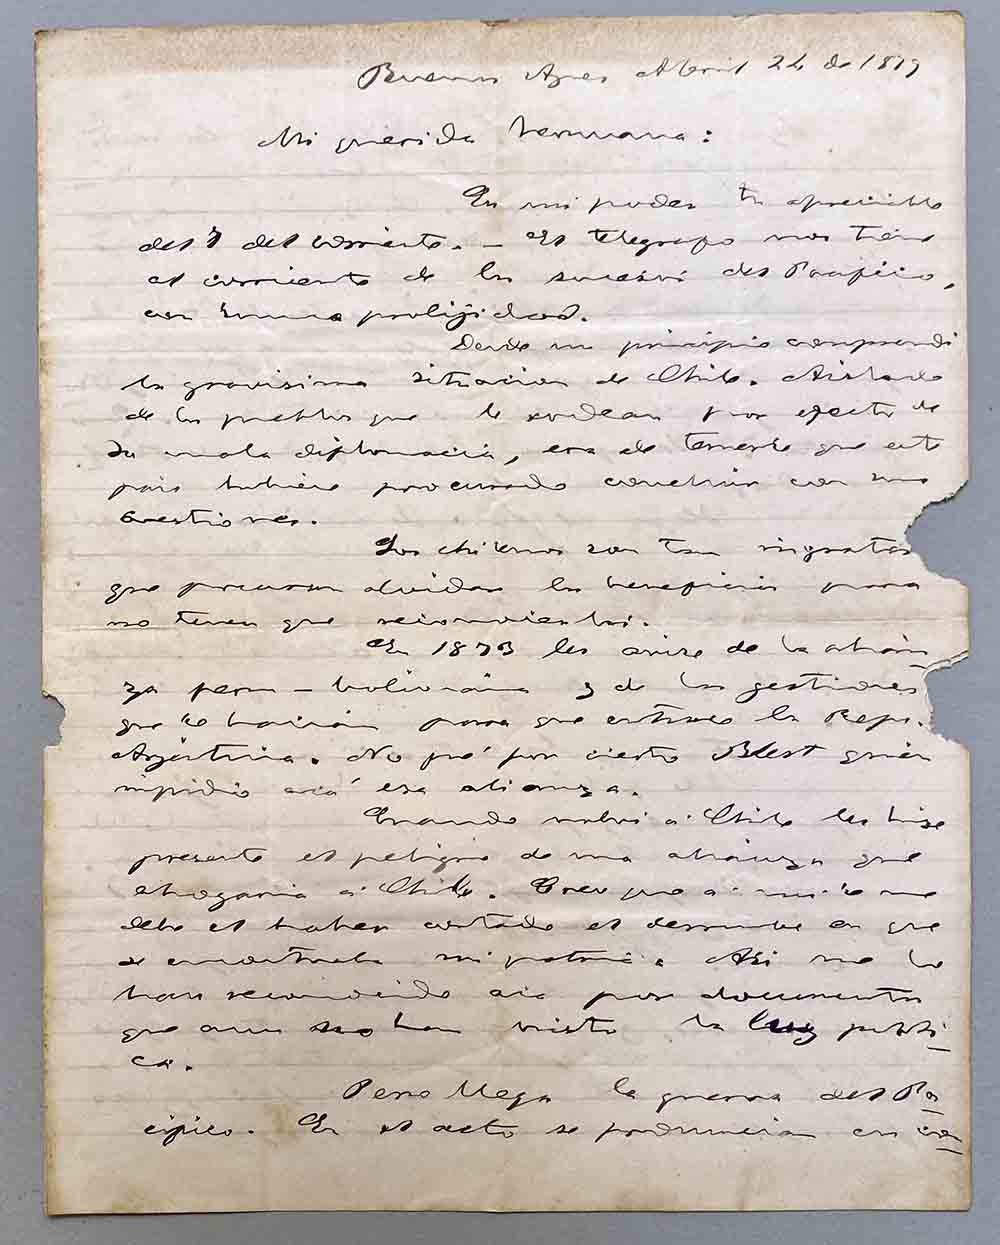 Buenos Ayres Abril 24 de 1879
Mi querida hermana:
En mi poder tu apreciable
del 5 del corriente. — El telegrafo nos tiene
al corriente de los sucesos del Pacifico,
con suma prolijidad.
Desde un principio comprendi
la gravisima situacion de Chile. Aislado
de los pueblos que le rodean por efecto de
su mala diplomacia, era de temerse que este
pais hubiese procurado concluir con sus
cuestiones.
Los chilenos son tan ingratos
que procuran olvidar los beneficios para
no tener que reconocerlos.
En 1873 les avise de la alian-
za peru-boliviana y de las gestiones
que se hacian para que entrase la Repu.
Argentina. No fué por cierto Blest quien
impidio acá esa alianza.
Cuando volvi a Chile les hise
presente el peligro de una alianza que
ahogaria a Chile. Creo que a mi se me
debe el haber cortado el derrumbe en que
se encontraba mi patria. Asi me lo
han reconocido acá por documentos
que aun no han visto la luz publi-
ca.
Pero llega la guerra del Pa-
cifico. En el acto se pronuncian en